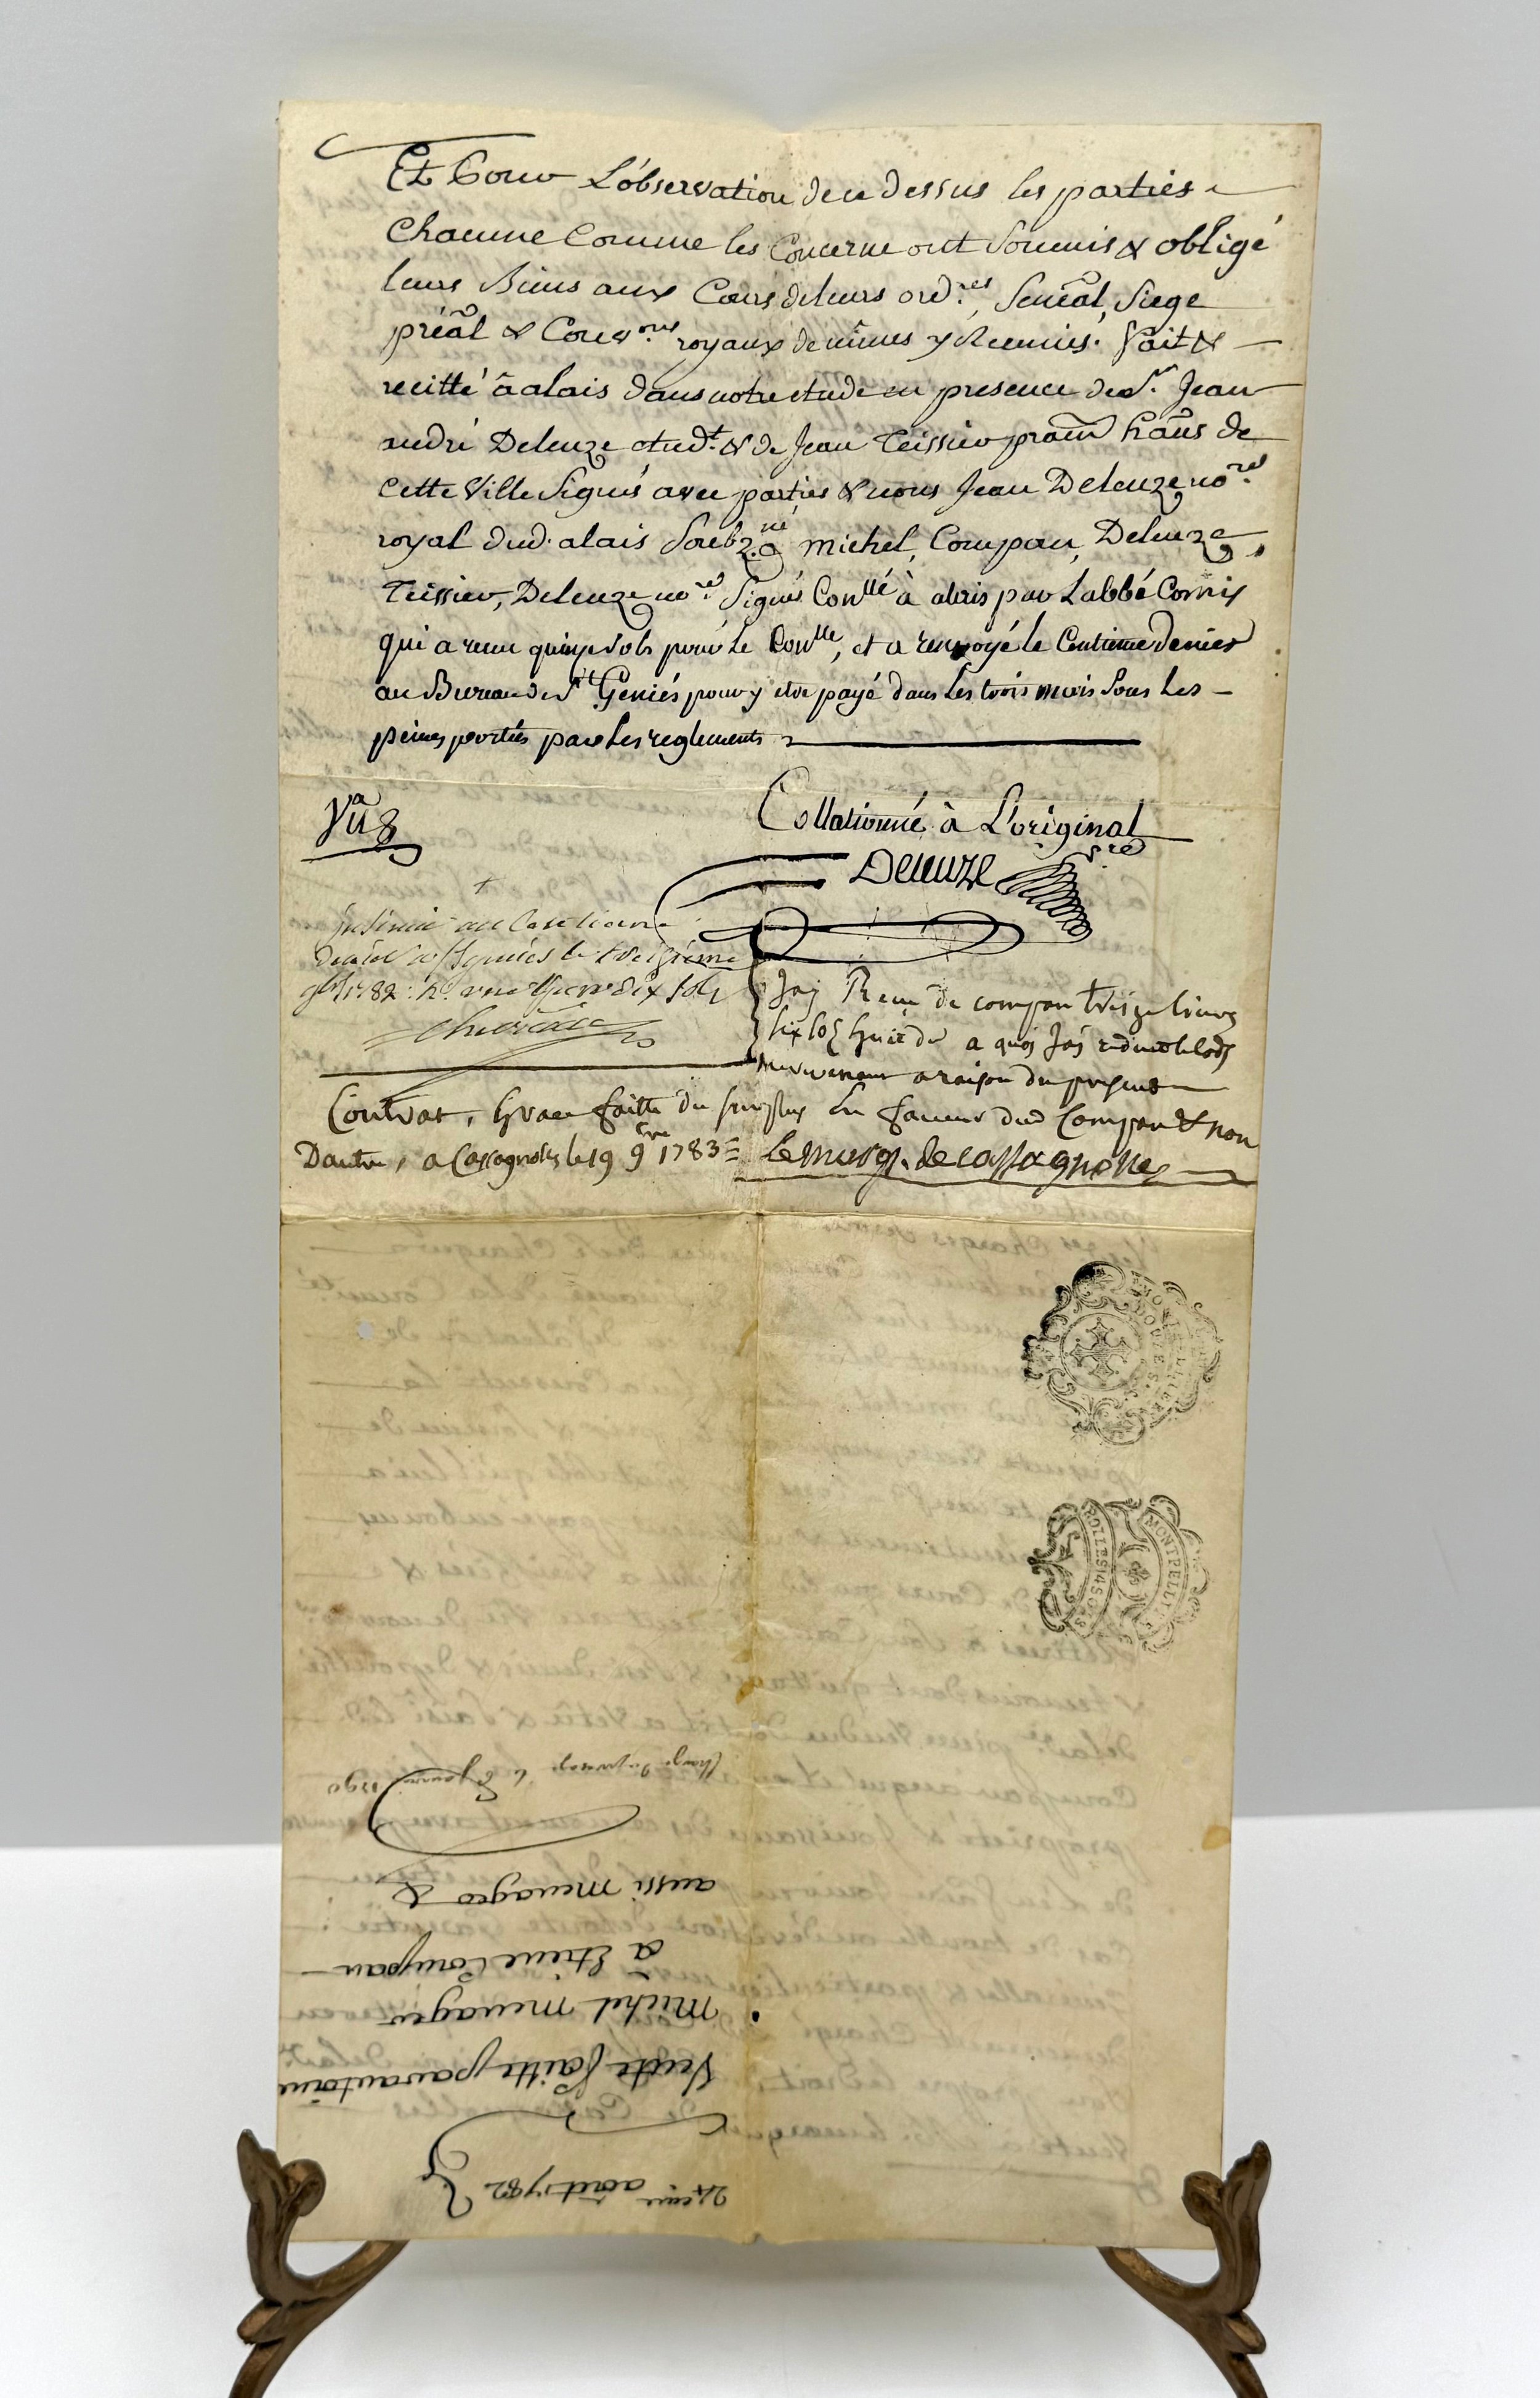 Et Pour L'observation de ce dessus les parties
Chacune Comme les Concerne ont Soumis & obligé
leurs Biens aux Cours de leurs ord.res, Senêal, Siege
préâl & Conv.ons royaux de nimes y Reunies. Fait &
recitté â alais dans notre etude en presence de Sr. Jean
andré Deleuze etudt. & de Jean Teissier pratn hâns de
Cette Ville Signés avec parties & nous Jean Deleuze no.re
royal dud. alais Soubz.né Michel, Compan, Deleuze,
Teissier, Deleuze no.re Signés Conllé à alais par Labbé Cornix
qui a recu quinze sols pour le Conlle, et a renvoyé le Centieme denier
au Bureau de St. Geniés pour y etre payé dans Les trois mois Sous Les
peines portées par Les reglements
Collationné à L'original
Deleuze n.re
Insinué au Centieme
denier a St Geniés le treizieme
9bre 1782
Jay Recu de compan treize livres
six sols huit d. a quoy Jay reduit le lods
me revenant a raison du present
Contrat, Grace faitte du surplus En faveur dud Compan & non
Dautre, a Cassagnoles le 19 9bre 1783
Le marqs. de cassagnoles
MONTPELLIER
MONTPELLIER
4 SOLS
1790
aussi menager &
a Etiene Compan
Michel menager
Vente faitte par antoine
24eme août 1782